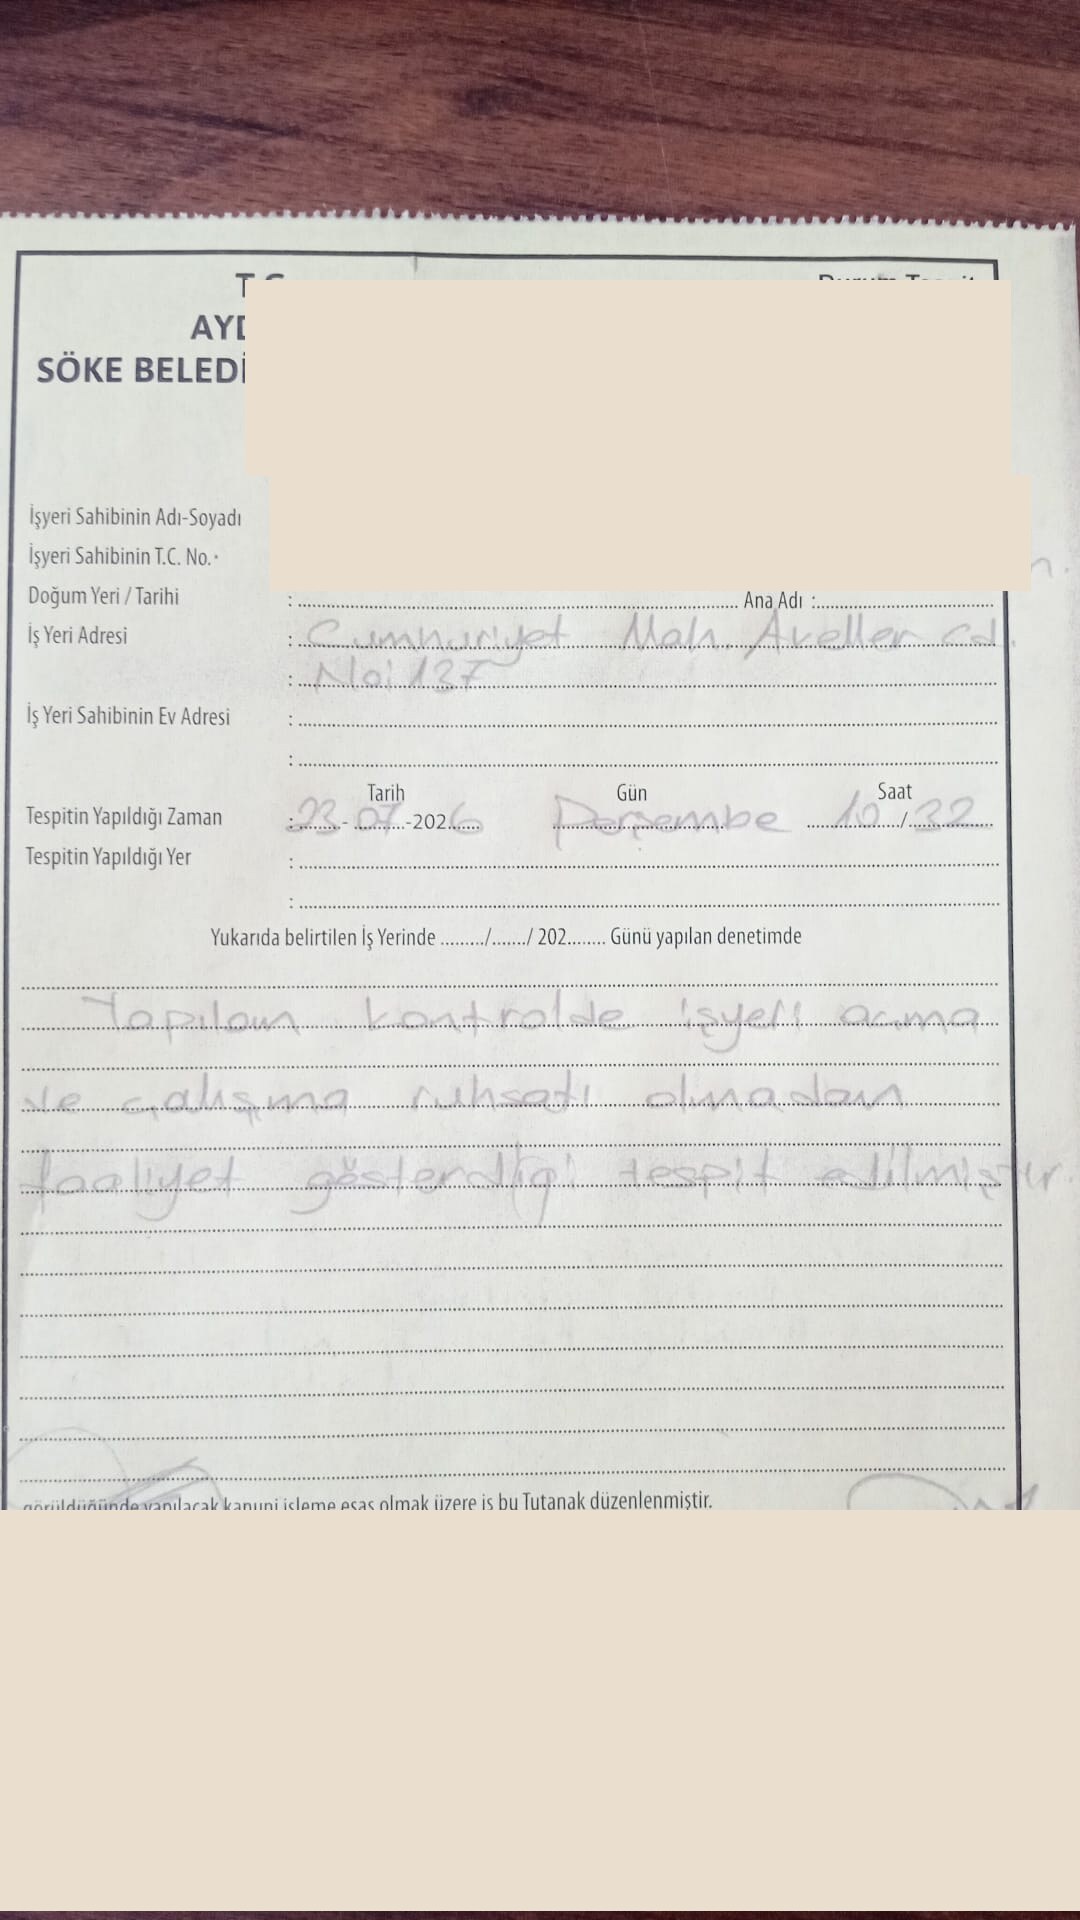 T.C.
AYD
SÖKE BELEDİ
İşyeri Sahibinin Adı-Soyadı
İşyeri Sahibinin T.C. No.
Doğum Yeri / Tarihi : Ana Adı :
İş Yeri Adresi : Cumhuriyet Mah. Aveller Cd.
: No: 137
İş Yeri Sahibinin Ev Adresi :
:
Tarih Gün Saat
Tespitin Yapıldığı Zaman : 23-07-2026 Perşembe 10/32
Tespitin Yapıldığı Yer :
:
Yukarıda belirtilen İş Yerinde ........./......./ 202........ Günü yapılan denetimde
Yapılan kontrolde işyeri açma
ve çalışma ruhsatı olmadan
faaliyet gösterdiği tespit edilmiştir.
görüldüğünde yapılacak kanuni işleme esas olmak üzere iş bu Tutanak düzenlenmiştir.